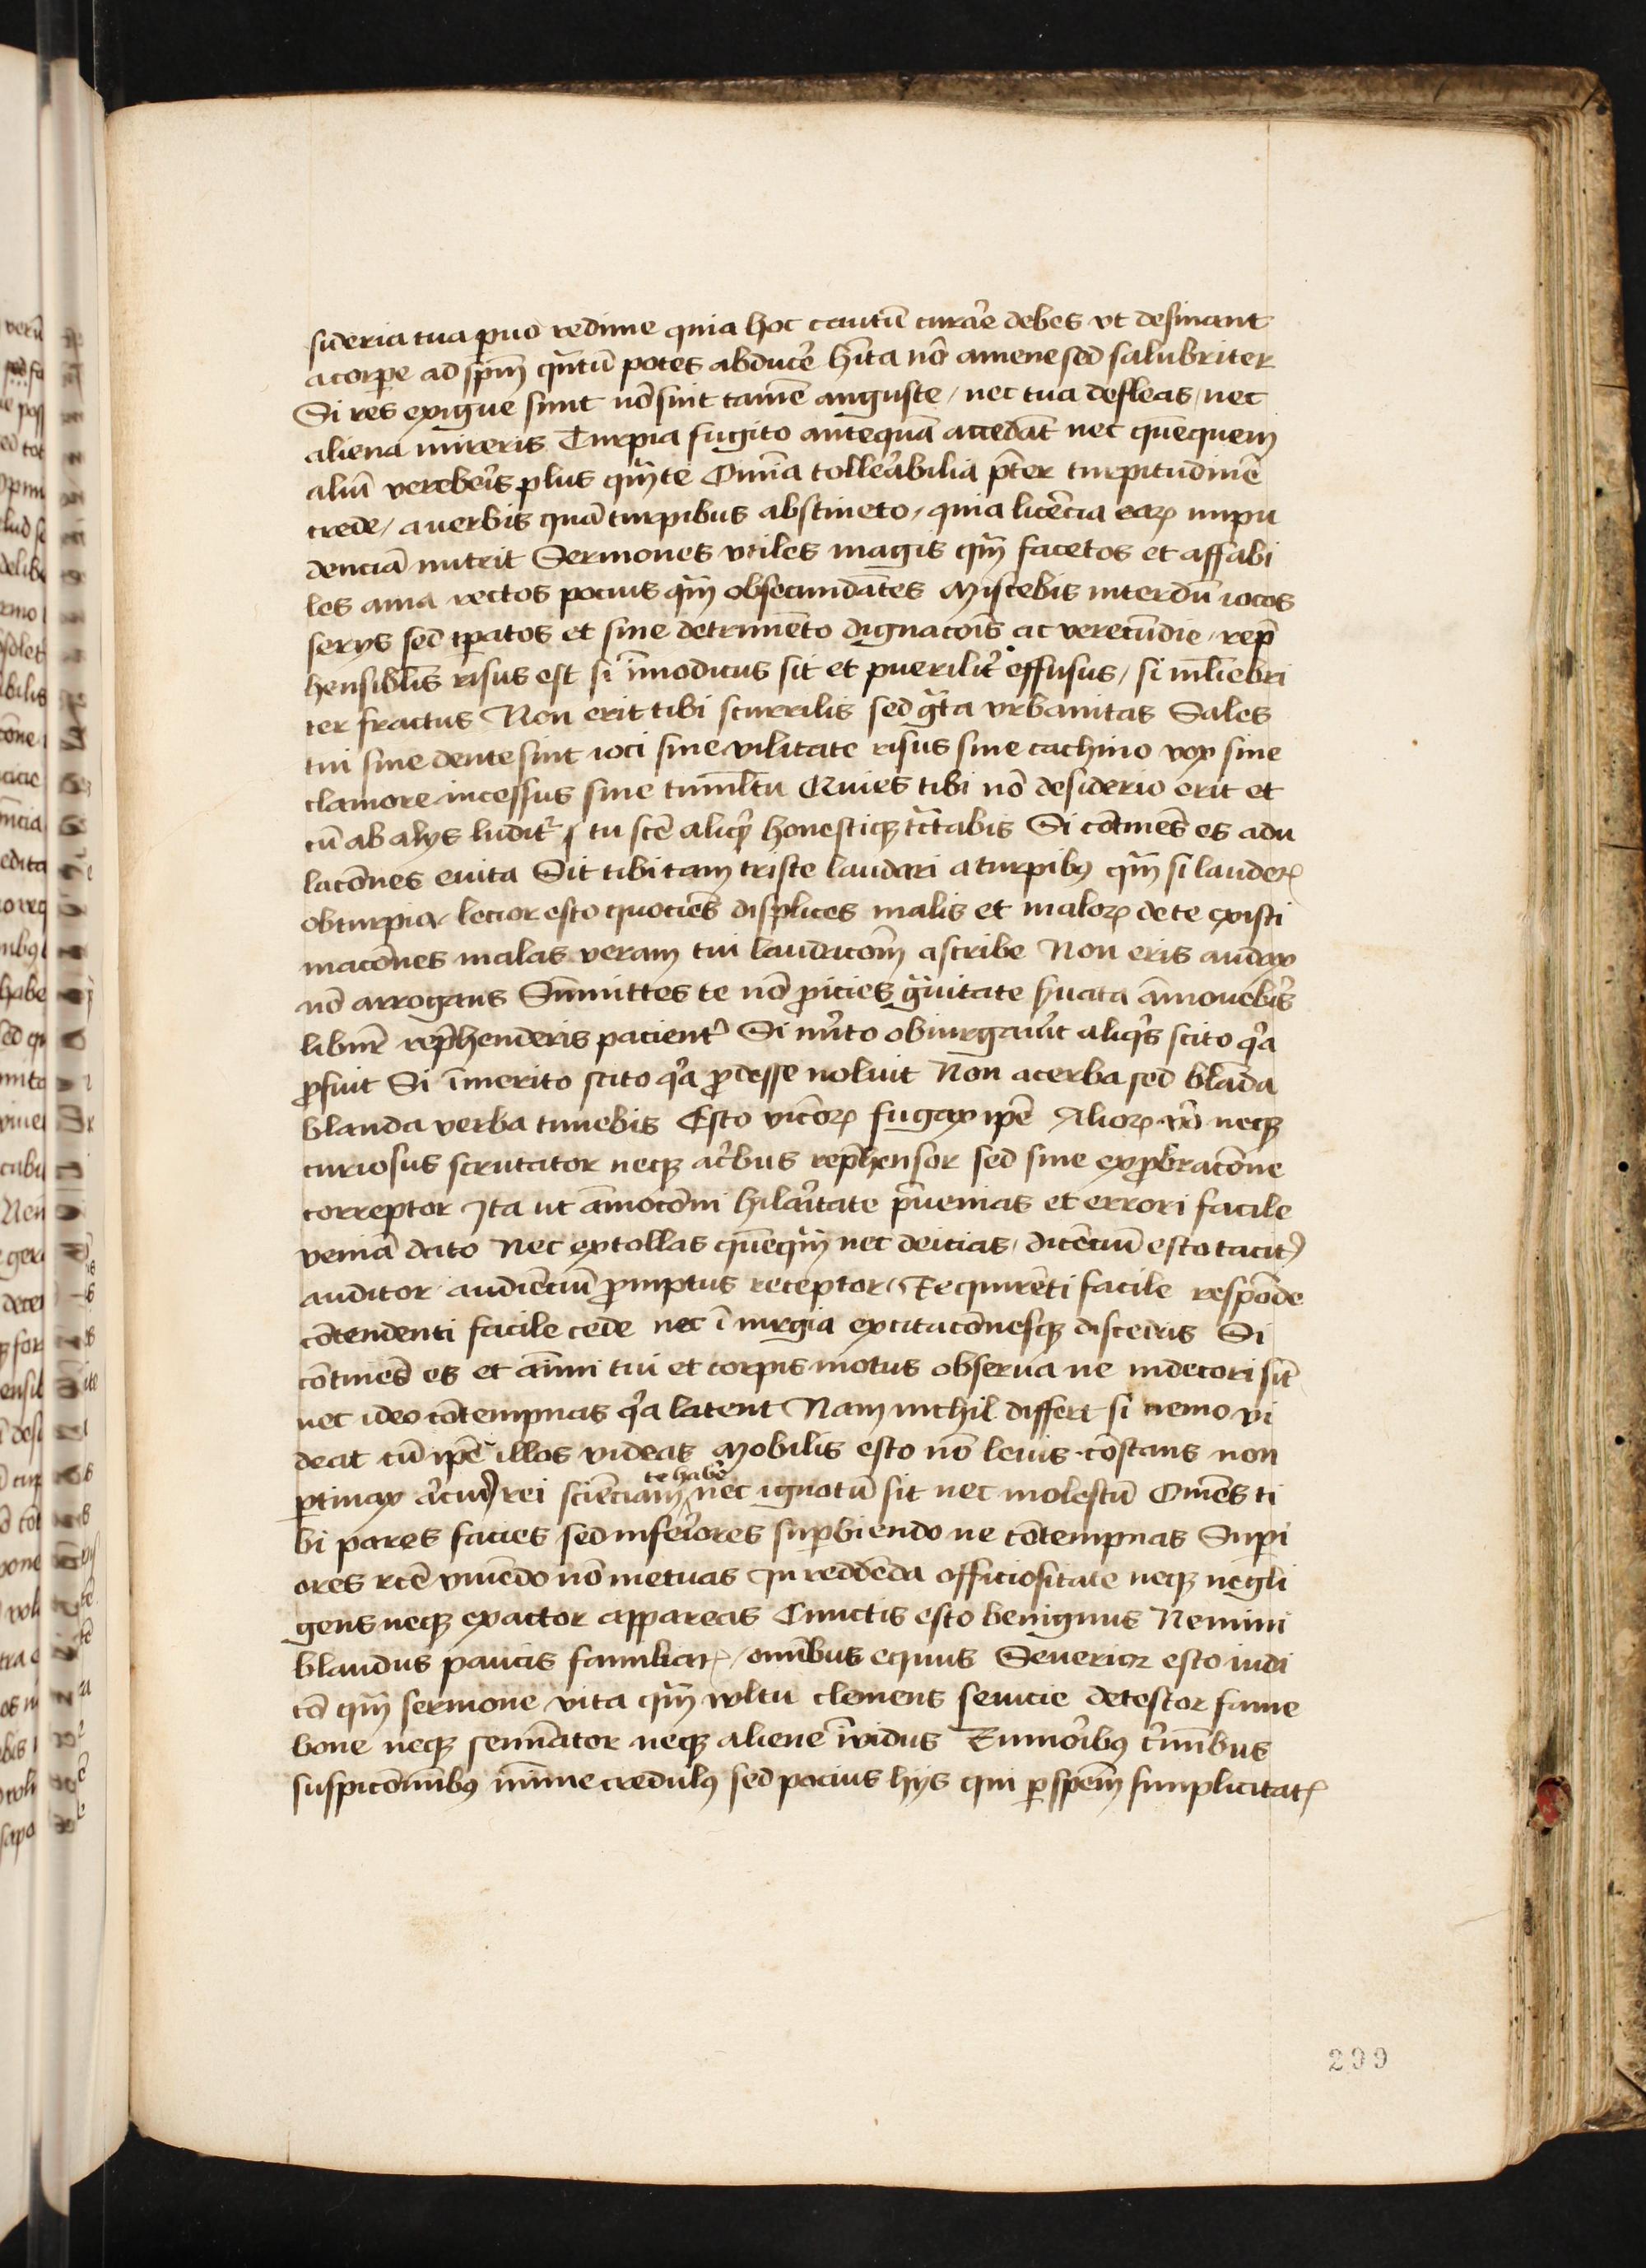 sideria tua puo redime quia hoc cautū curar̄e debes vt desinant
a corpe ad spm̄ qntū potes abducē hīta nō amene sed salubriter
Si res exigue sunt nō sint tamē anguste / nec tua defleas / nec
aliena mireris Turpia fugito anteqnā accedāt nec quēquem
aliū vereberis plus qm̄ te Omīa tollerabilia pter turpitudinē
crede / a verbis quā turpibus abstineto / quia licēcia eaꝝ impu
denciā nutrit Sermones vtiles magis qm̄ facetos et affabi
les ama rectos pocius qm̄ obsecundātes Miscebis interdū iocos
serys sed tꝑatos et sine detrimēto dignacōis ac verecūdie / rep̄
hensibl̄is risus est si īmodicus sit et pueriliter effusus / si ml̄iebri
ter fractus Non erit tibi scurrilis sed gͣta vrbanitas Sales
tui sine dente sint ioci sine vilitate risus sine cachino vox sine
clamore incessus sine tumltu Quies tibi nō desiderio erit et
cū ab alys ludit tu scē aliqͥ honestiqꝫ tͣctabis Si cōtinēs es adu
lacōnes euita Sit tibi tam triste laudari a turpibꝰ qm̄ si lauderꝭ
ob turpia / lecior esto quociēs displices malis et maloꝝ de te existi
macōnes malas veram tui laudicōm̄ ascribe Non eris audax
nō arrogans Sūmittes te nō ꝓicies gͣuitate huata āmonebis
libnt rep̄henderis pacient Si mͥto obiurgauit aliqͥs scito qͥa
ꝓfuit Si īmerito scito qͥa ꝓdesse noluit Non acerba sed blāda
blanda verba timebis Esto vicōꝝ fugax ipē Alioꝝ vͦ neqꝫ
curiosus scrutator neqꝫ acͥbus rep̄hensor sed sine exꝓbracōne
correptor Ita ut āmocōni hilarͥtate pͥuenias et errori facile
veniā dato Nec extollas quēqm̄ nec deicias / dicēciū esto tacitꝰ
auditor audiēciū ꝓmptus receptor / Requirēti facile respōde
cōtendenti facile cede nec ī iurgia excitacōnesqꝫ discedis Si
cōtinēs es et āimi tui et corpis motus obserua ne indecori sit̄
nec ideo cōtempnas qͥa latent Nam nichil differt si nemo vi
deat cū ipē illos videas Mobilis esto nō leuis · cōstans non
ꝑtinax rei sciēciam te habē nec ignotū sit nec molestū Omēs ti
bi pares facies sed inferͥores suꝑbiendo ne cōtempnas Supi
ores rcē viuēdo nō metuas In reddēda officiositate neqꝫ negli
gens neqꝫ exactor appareas Cunctis esto benignus Nemini
blandus paucis familiarꝭ / omībus equus Seuerior esto iudi
cō qm̄ sermone vita qm̄ wltu clemens seuicie detestor fame
bone neqꝫ semīator neqꝫ aliene īuidus Rumorͥbꝰ cͥmībus
suspicōmībꝰ mīme credulꝰ sed pocius hys qui ꝑ spēm simplicitatꝭ
299